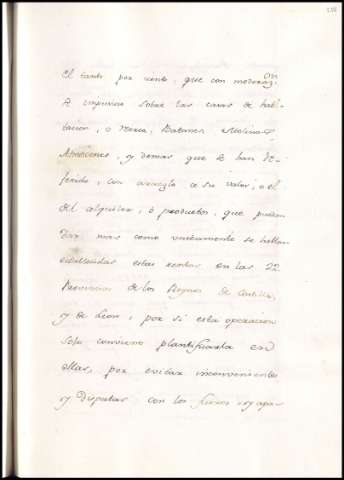 el tanto por ciento, que con moderaz.on
se impusiese sobre las casas de habi-
tacion, o recreo, Batanes, Molinos,
Almacenes, y demas que se han re-
ferido, con arreglo a su valor, o el
del alquiler, ó productos, que puedan
dar mas como unicamente se hallan
establecidas estas rentas en las 22
Provincias de los Reynos de Castilla,
y de Leon, y por si esta operacion
solo conviene plantificarla en
ellas, por evitar inconvenientes
y disputas con los